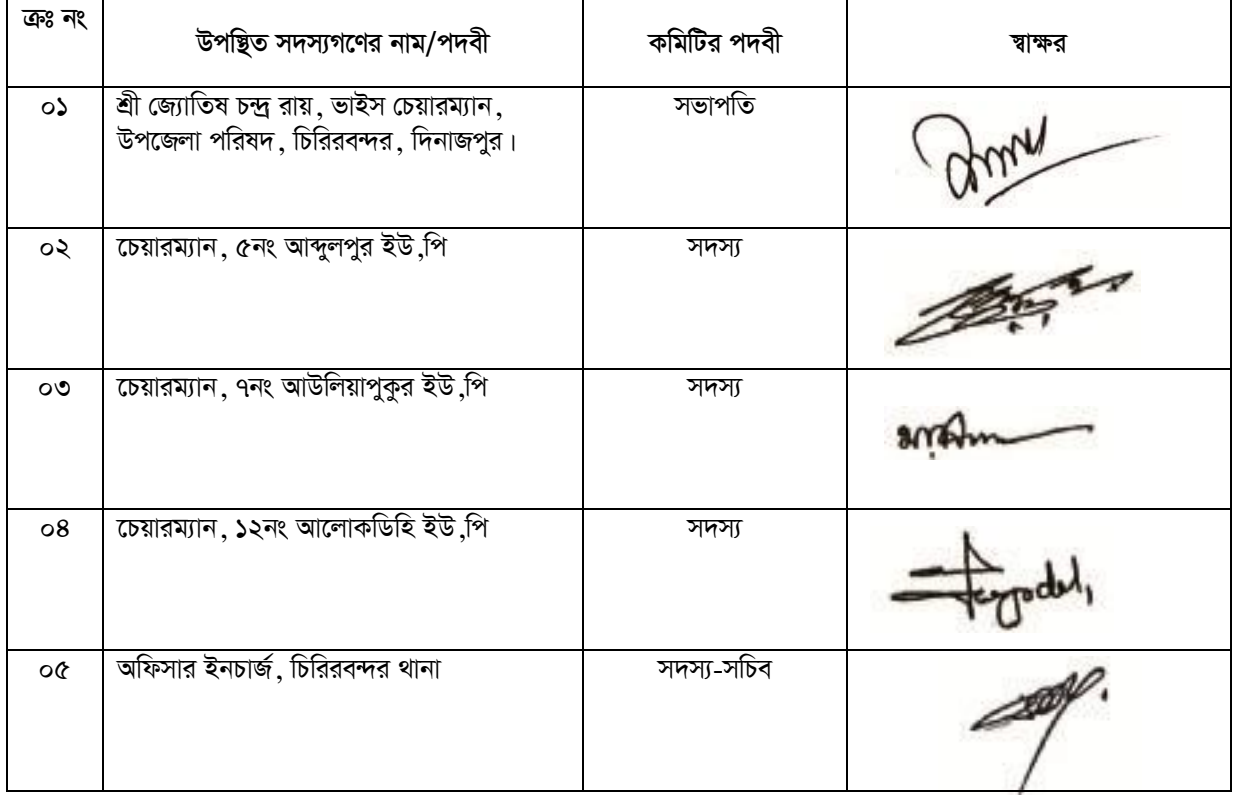 ক্রঃ নং
উপস্থিত সদস্যগণের নাম/পদবী
কমিটির পদবী
স্বাক্ষর
০১
শ্রী জ্যোতিষ চন্দ্র রায়, ভাইস চেয়ারম্যান,
উপজেলা পরিষদ, চিরিরবন্দর, দিনাজপুর।
সভাপতি
০২
চেয়ারম্যান, ৫নং আব্দুলপুর ইউ,পি
সদস্য
০৩
চেয়ারম্যান, ৭নং আউলিয়াপুকুর ইউ,পি
সদস্য
০৪
চেয়ারম্যান, ১২নং আলোকডিহি ইউ,পি
সদস্য
০৫
অফিসার ইনচার্জ, চিরিরবন্দর থানা
সদস্য-সচিব